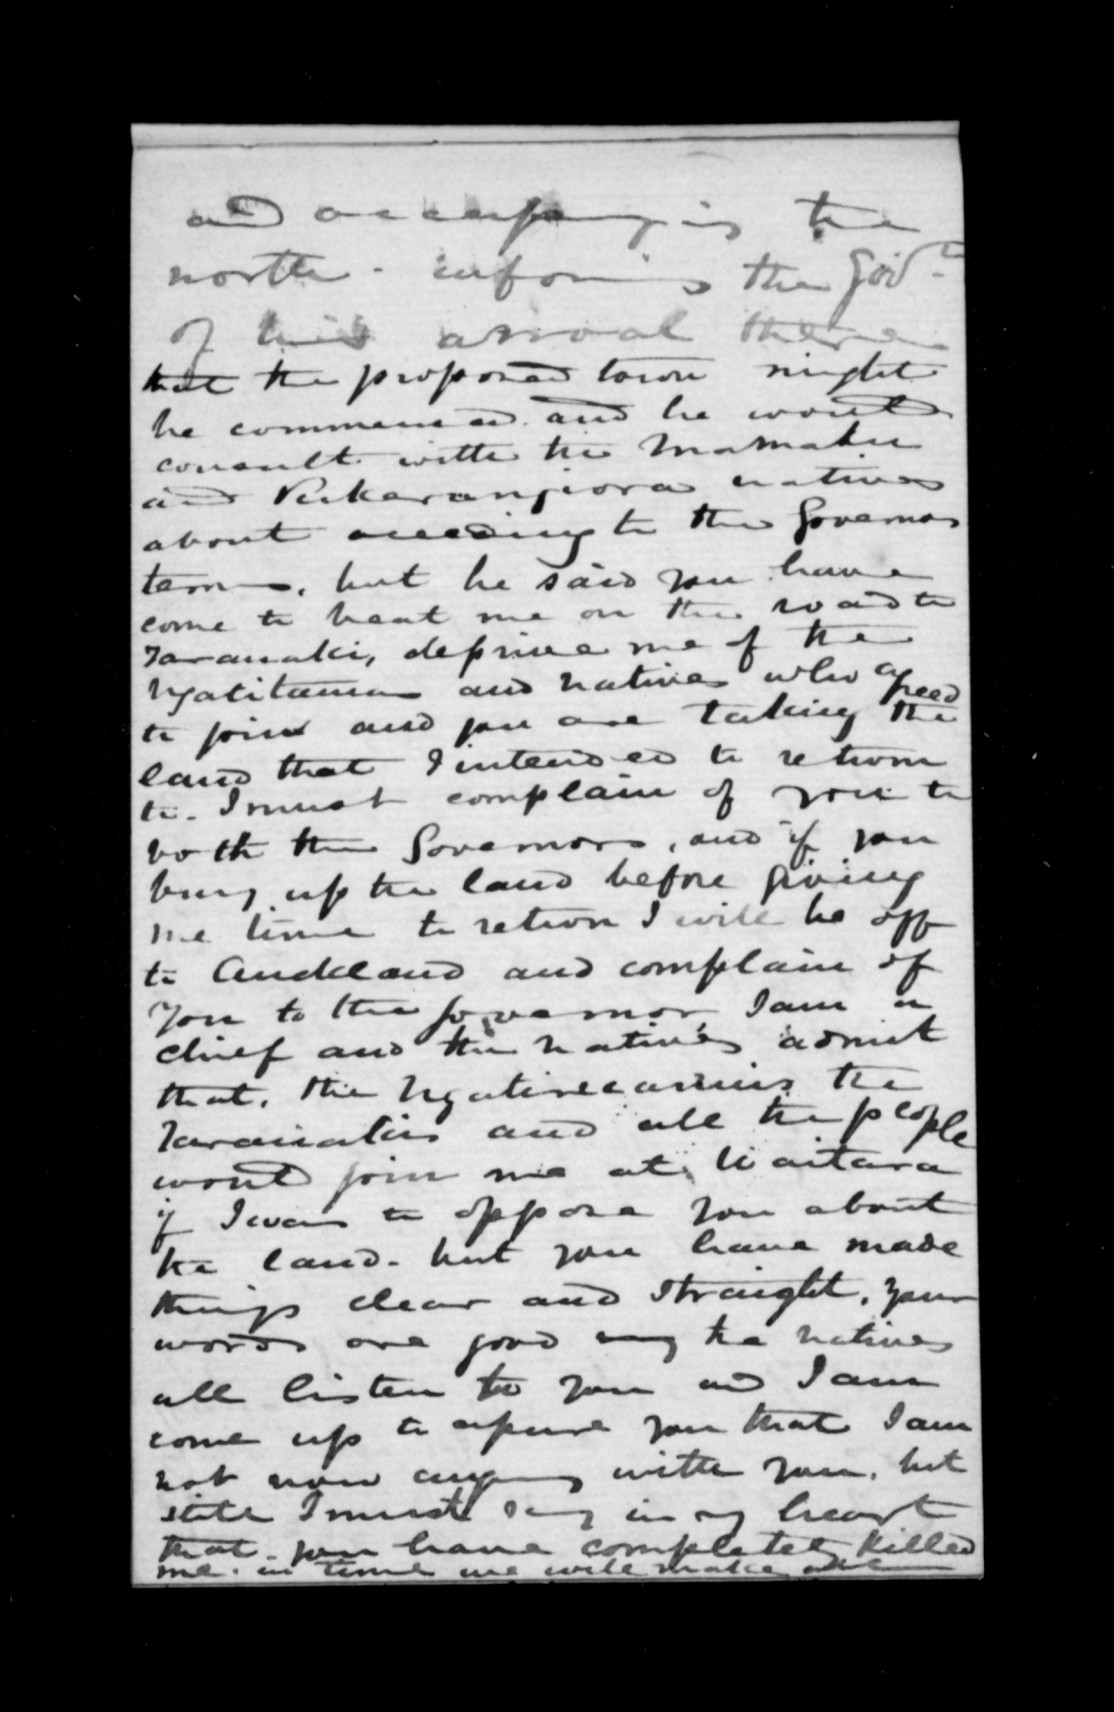 and occupying the
north. informing the Govr
of his arrival there
that the proposed town might
be commenced. and he would
consult with the Mamaku
and Pukerangiora natives
about acceding to the Governors
terms, but he said you have
come to beat me on the road to
Taranaki, deprive me of the
Ngatitamas and natives who agreed
to join and you are taking the
land that I intended to return
to. I must complain of you to
both the Governors, and if you
buy up the land before giving
me time to return I will be off
to Auckland and complain of
you to the Governor I am a
chief and the natives admit
that, the the
Taranakis and all the people
would join me at Waitara
if I was to oppose you about
the land. but you have made
things clear and straight, your
words are good my the natives
all listen to you and I am
come up to assure you that I am
not now angry with you. but
still I must say in my heart
that you have completely killed
me. in time we will make